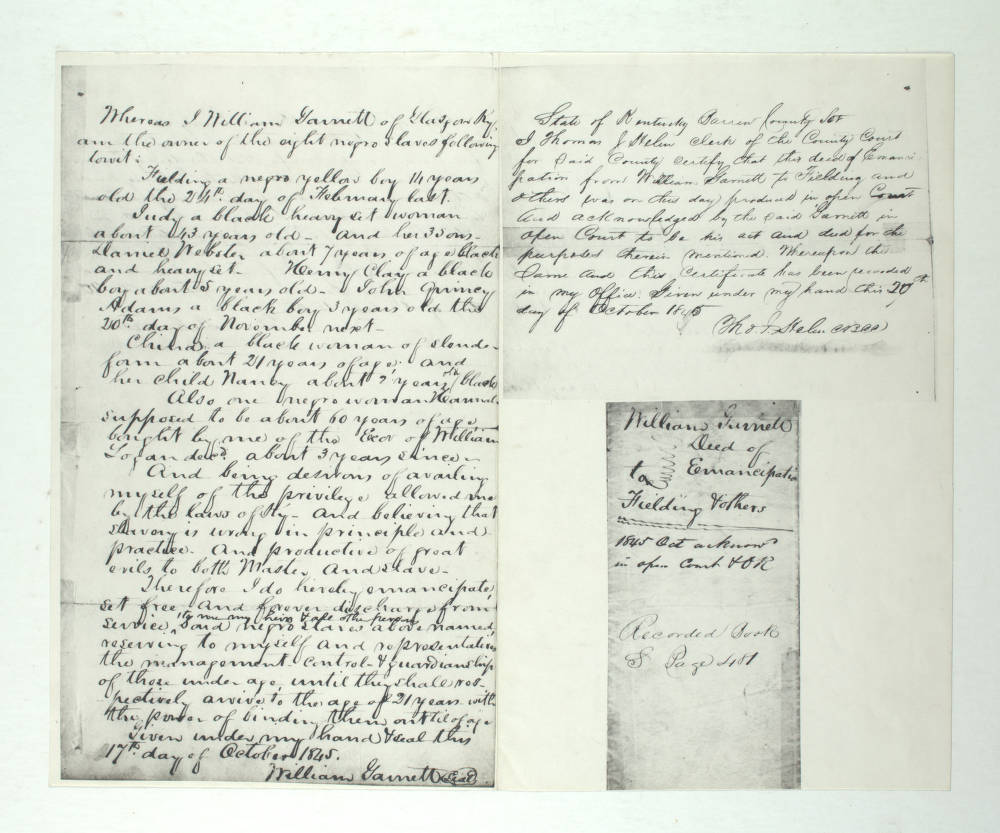 Whereas I William Garnett of Glasgow Ky.
am the owner of the eight negro slaves following
towit:
Fielding a negro yellow boy 14 years
old the 24th day of February last.
Judy a black heavy set woman
about 43 years old - And her 3 sons -
Daniel Webster about 7 years of age black
and heavy set - Henry Clay a black
boy about 5 years old - John Quincy
Adams a black boy 3 years old the
20th day of November next -
a black woman of slender
form about 21 years of age: and
her child Nancy about years old black
Also one negro woman Hannah
supposed to be about 60 years of age
bought by me of the Exor of William
Logan decd. about 3 years since -
And being desirous of availing
myself of the privilege allowed me
by the laws of Ky - And believing that
slavery is wrong in principle and
practice - And productive of great
evils to both Master And slave -
Therefore I do hereby emancipate,
set free And forever discharge from
service, to me my heirs & all other persons
said negro slaves above named,
reserving to myself and representatives
the management - control - & guardianship
of those under age until they shall res-
pectively arrive to the age of 21 years with
the power of binding them out til of age
Given under my hand & seal this
17th day of October 1845.
William Garnett Seal
State of Kentucky Barren County Sct
I Thomas J Helm clerk of the County Court
for Said County certify that this deed of Emanci
pation from William Garnett to Fielding and
others was on this day produced in open Court
And acknowledged by the said Garnett in
open Court to be his act and deed for the
purposes therein mentioned. Whereupon the
Same and this Certificate has been recorded
in my Office. Given under my hand this 20th
day of October 1845
Tho J. Helm
William Garnett
Deed of
to Emancipation
Fielding & others
1845 Oct acknow
in open Court & OR
Recorded Book
S Page 481